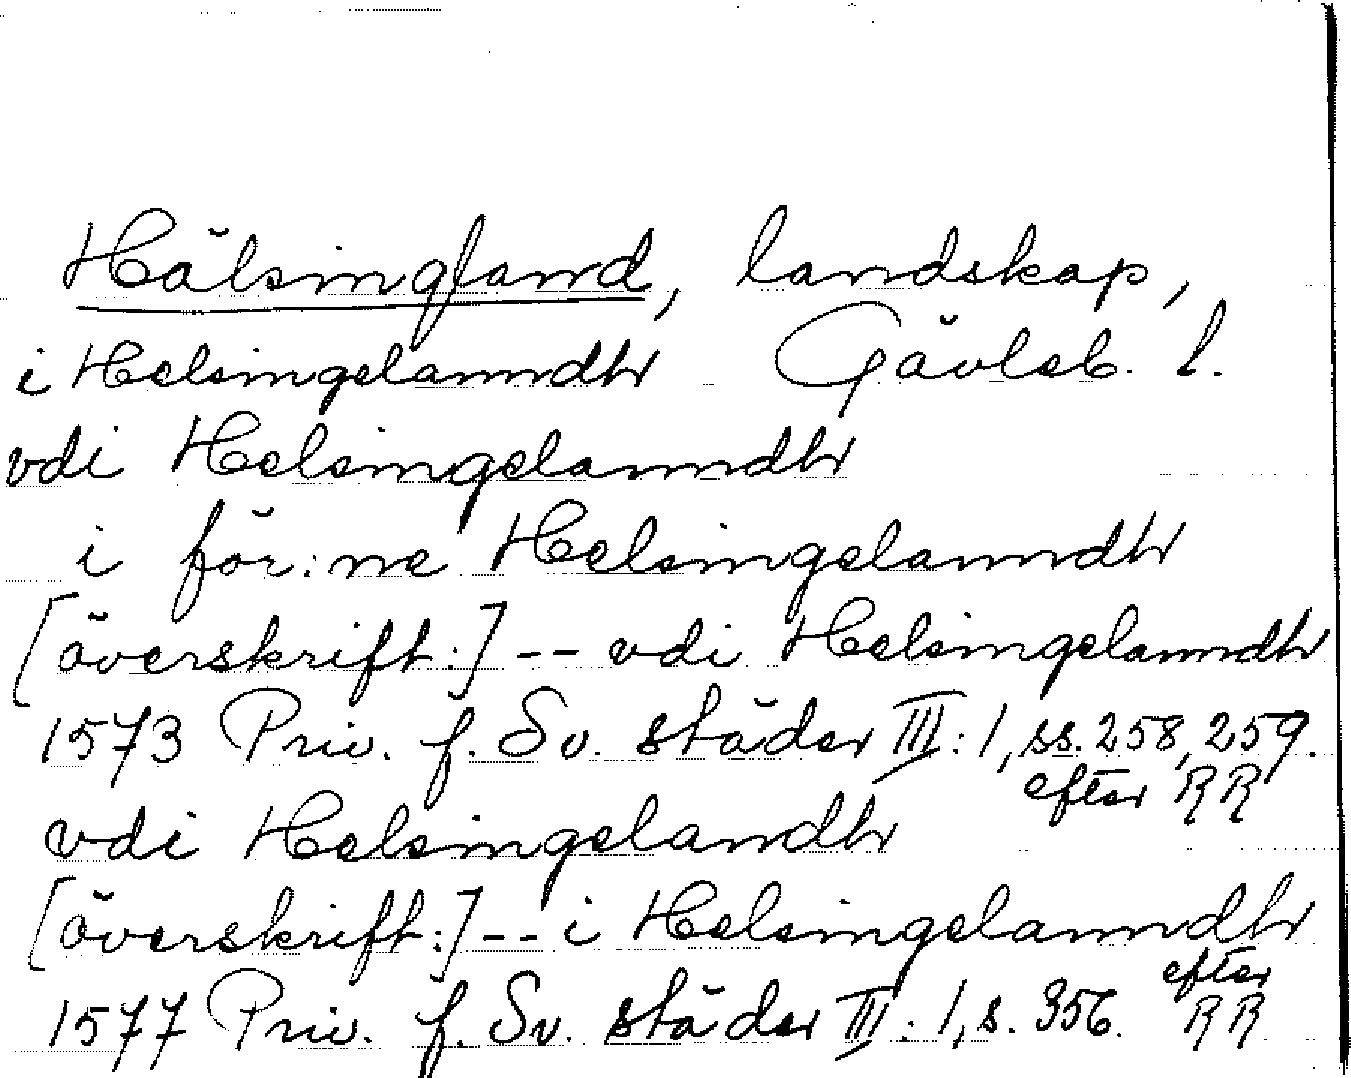 Hälsingland, landskap,
i Helsingelanndh Gävleb. l.
vdi Helsingelanndh
i för:ne Helsingelanndh
[överskrift:] -- vdi Helsingelanndh
1573 Priv. f. Sv. städer III: 1, ss. 258, 259.
efter RR
vdi Helsingelandh
[överskrift:] -- i Helsingelanndh
efter
1577 Priv. f. Sv. städer III: 1, s. 356. RR